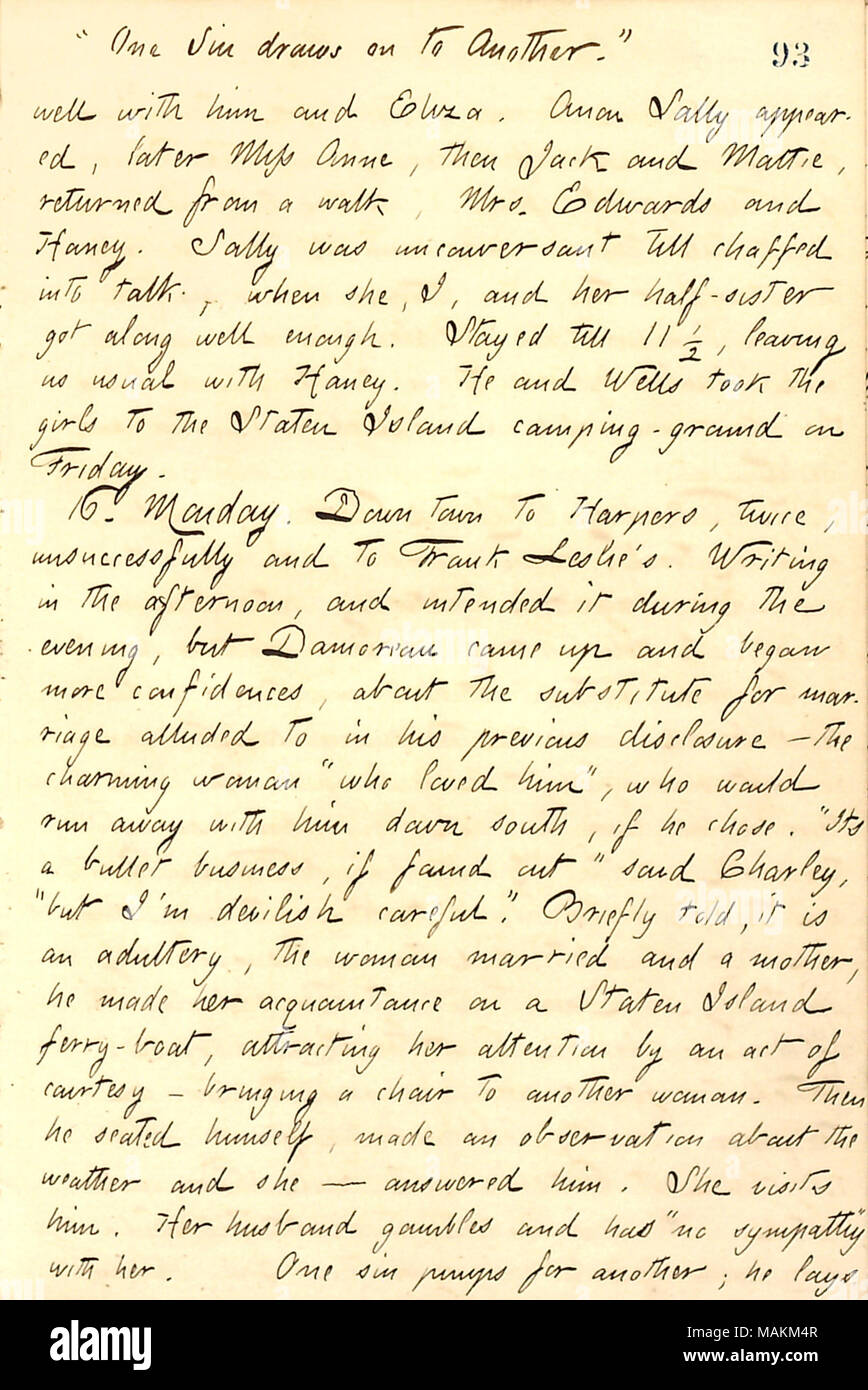 "One Sin draws on to Another."
93
well with him and Eliza. Anon Sally appear-
ed, later Miss Anne, then Jack and Mattie,
returned from a walk, Mrs. Edwards and
Haney. Sally was unconversant till chaffed
into talk, when she, I, and her half-sister
got along well enough. Stayed till 11 1/2, leaving
as usual with Haney. He and Wells took the
girls to the Staten Island camping-ground on
Friday.
16. Monday. Down town to Harpers, twice,
unsuccessfully and to Frank Leslie's. Writing
in the afternoon, and intended it during the
evening, but Damoreau came up and began
more confidences, about the substitute for mar-
riage alluded to in his previous disclosure — the
charming woman "who loved him", who would
run away with him down south, if he chose. "Its
a bullet business, if found out" said Charley,
"but I'm devilish careful". Briefly told, it is
an adultery, the woman married and a mother,
he made her acquaintance on a Staten Island
ferry-boat, attracting her attention by an act of
courtesy — bringing a chair to another woman. Then
he seated himself, made an observation about the
weather and she — answered him. She visits
him. Her husband gambles and has "no sympathy"
with her. One sin pimps for another; he lays
alamy
Image ID: MAKM4R
www.alamy.com